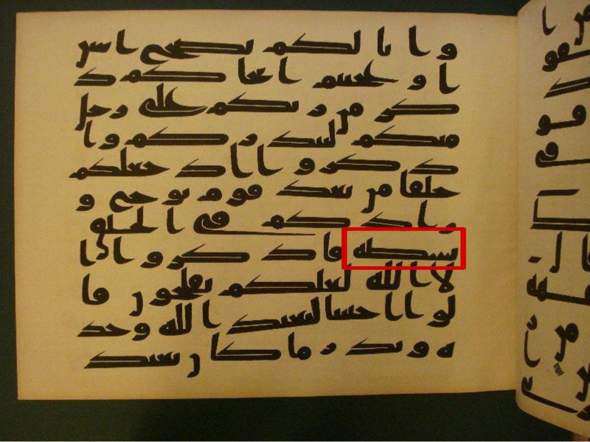 و انا لكم نصح امين
ا و عجبتم ان جاكم ذ
كر من ر بكم على رجل
منكم لينذ ر كم و ا
ذ كر و ا ا ذ جعلكم
خلفا من بعد قوم نوح و
ز ا د كم في الخلق
بسطه فا ذ كر و ا ا
لا الله لعلكم تفلحو ن قا
لو ا ا جئتنا لنعبد الله وحد
ه و نذ ر ما كا ن يعبد